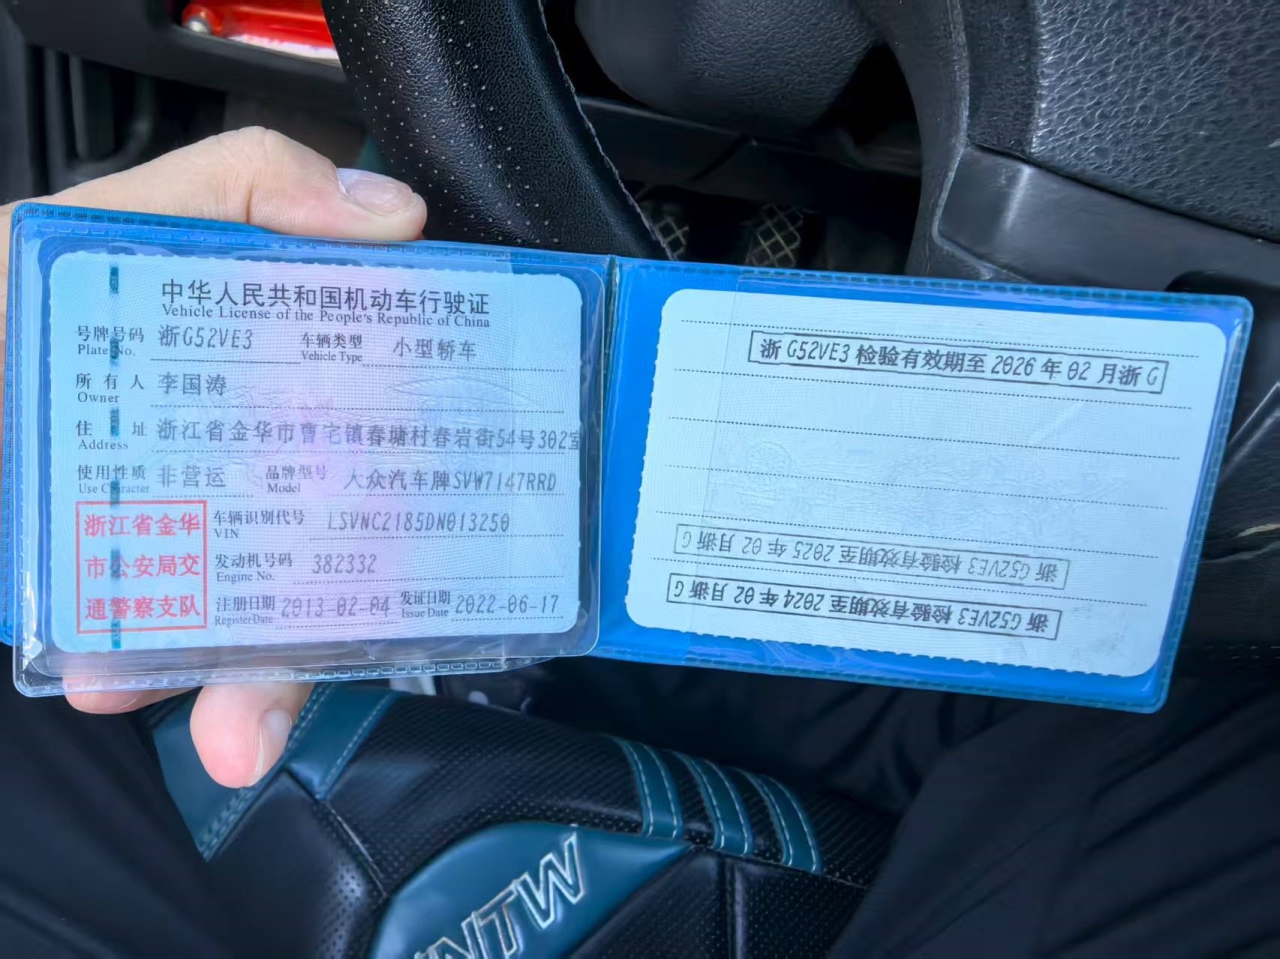 中华人民共和国机动车行驶证
Vehicle License of the People's Republic of China
号牌号码 浙G52VE3 车辆类型 小型轿车
Plate No. Vehicle Type
所有人 李国涛
Owner
住址 浙江省金华市曹宅镇春塘村春岩街54号302室
Address
使用性质 非营运 品牌型号 大众汽车牌SVW7147RRD
Use Character Model
浙江省金华
市公安局交
通警察支队
车辆识别代号 LSVNC2185DN013250
VIN
发动机号码 382332
Engine No.
注册日期 2013-02-04 发证日期 2022-06-17
Register Date Issue Date
浙G52VE3检验有效期至2026年02月浙G
浙G52VE3检验有效期至2025年02月浙G
浙G52VE3检验有效期至2024年02月浙G